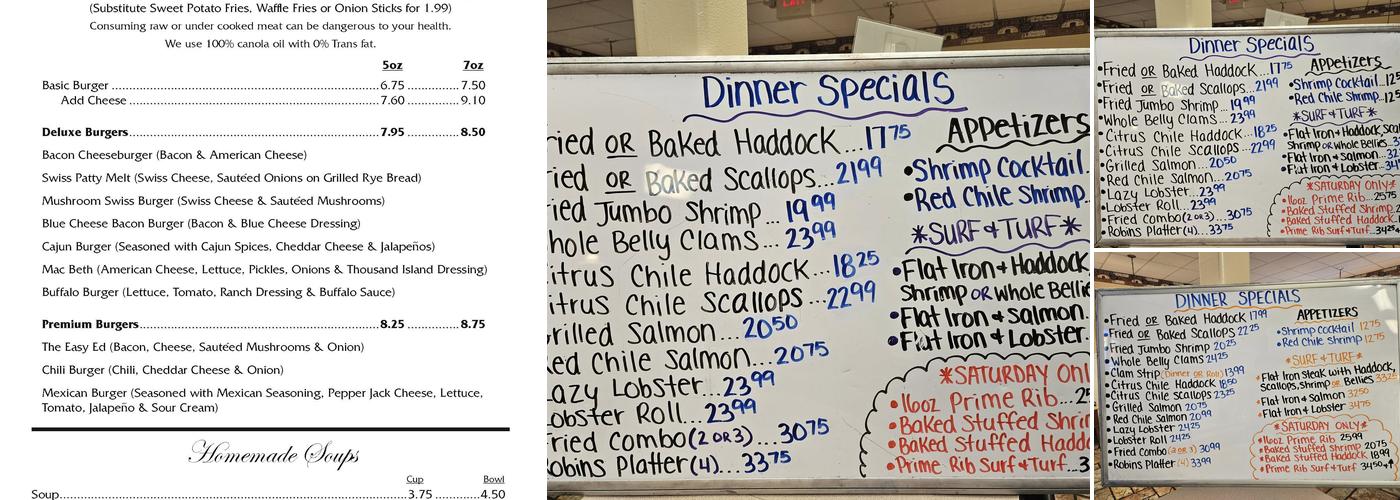 (Substitute Sweet Potato Fries, Waffle Fries or Onion Sticks for 1.99)
Consuming raw or under cooked meat can be dangerous to your health.
We use 100% canola oil with 0% Trans fat.
5oz 7oz
Basic Burger 6.75 7.50
Add Cheese 7.60 9.10
Deluxe Burgers 7.95 8.50
Bacon Cheeseburger (Bacon & American Cheese)
Swiss Patty Melt (Swiss Cheese, Sautéed Onions on Grilled Rye Bread)
Mushroom Swiss Burger (Swiss Cheese & Sautéed Mushrooms)
Blue Cheese Bacon Burger (Bacon & Blue Cheese Dressing)
Cajun Burger (Seasoned with Cajun Spices, Cheddar Cheese & Jalapeños)
Mac Beth (American Cheese, Lettuce, Pickles, Onions & Thousand Island Dressing)
Buffalo Burger (Lettuce, Tomato, Ranch Dressing & Buffalo Sauce)
Premium Burgers 8.25 8.75
The Easy Ed (Bacon, Cheese, Sautéed Mushrooms & Onion)
Chili Burger (Chili, Cheddar Cheese & Onion)
Mexican Burger (Seasoned with Mexican Seasoning, Pepper Jack Cheese, Lettuce,
Tomato, Jalapeño & Sour Cream)
Homemade Soups
Cup Bowl
Soup 3.75 4.50
Dinner Specials
ried OR Baked Haddock...1775
ried OR Baked Scallops...2199
ried Jumbo Shrimp...1999
hole Belly Clams...2399
itrus Chile Haddock...1825
itrus Chile Scallops...2299
rilled Salmon...2050
ed Chile Salmon...2075
azy Lobster...2399
obster Roll...2399
ried Combo(2 OR 3)...3075
obins Platter(4)...3375
APPetizers
•Shrimp Cocktail.
•Red Chile Shrimp..
*SURF & TURF*
•Flat Iron + Haddock
Shrimp OR Whole Bellie
•Flat Iron & Salmon.
•Flat Iron & Lobster.
*SATURDAY Onl
•16oz Prime Rib...25
•Baked Stuffed Shri
•Baked Stuffed Hadd
•Prime Rib Surf & Turf...3
Dinner Specials
•Fried OR Baked Haddock...1775
•Fried OR Baked Scallops...2199
•Fried Jumbo Shrimp...1999
•Whole Belly Clams...2399
•Citrus Chile Haddock...1825
•Citrus Chile Scallops...2299
•Grilled Salmon...2050
•Red Chile Salmon...2075
•Lazy Lobster...2399
•Lobster Roll...2399
•Fried Combo(2 OR 3)...3075
•Robins Platter(4)...3375
APPetizers
•Shrimp Cocktail...125
•Red Chile Shrimp...125
*SURF & TURF*
•Flat Iron + Haddock, Sca
Shrimp OR Whole Bellies
•Flat Iron & Salmon...
•Flat Iron & Lobster...
*SATURDAY ONLY*
•16oz Prime Rib...2575
•Baked Stuffed Shrimp
•Baked Stuffed Haddock
•Prime Rib Surf & Turf...
DINNER SPECIALS
•Fried OR Baked Haddock 1799
•Fried OR Baked Scallops 2225
•Fried Jumbo Shrimp 2025
•Whole Belly Clams 2425
•Clam Strip (Dinner OR Roll) 1399
•Citrus Chile Haddock 1850
•Citrus Chile Scallops 2325
•Grilled Salmon 2075
•Red Chile Salmon 2099
•Lazy Lobster 2425
•Lobster Roll 2425
•Fried Combo (2 OR 3) 3099
•Robins Platter (4) 3399
APPETIZERS
•Shrimp Cocktail 1275
•Red Chile Shrimp 1275
*SURF & TURF*
•Flat Iron Steak with Haddock,
Scallops, Shrimp OR Bellies 3325
•Flat Iron & Salmon 3250
•Flat Iron & Lobster 3475
*SATURDAY ONLY*
•16oz Prime Rib 2599
•Baked Stuffed Shrimp 2075
•Baked Stuffed Haddock 1899
•Prime Rib Surf & Turf 3450